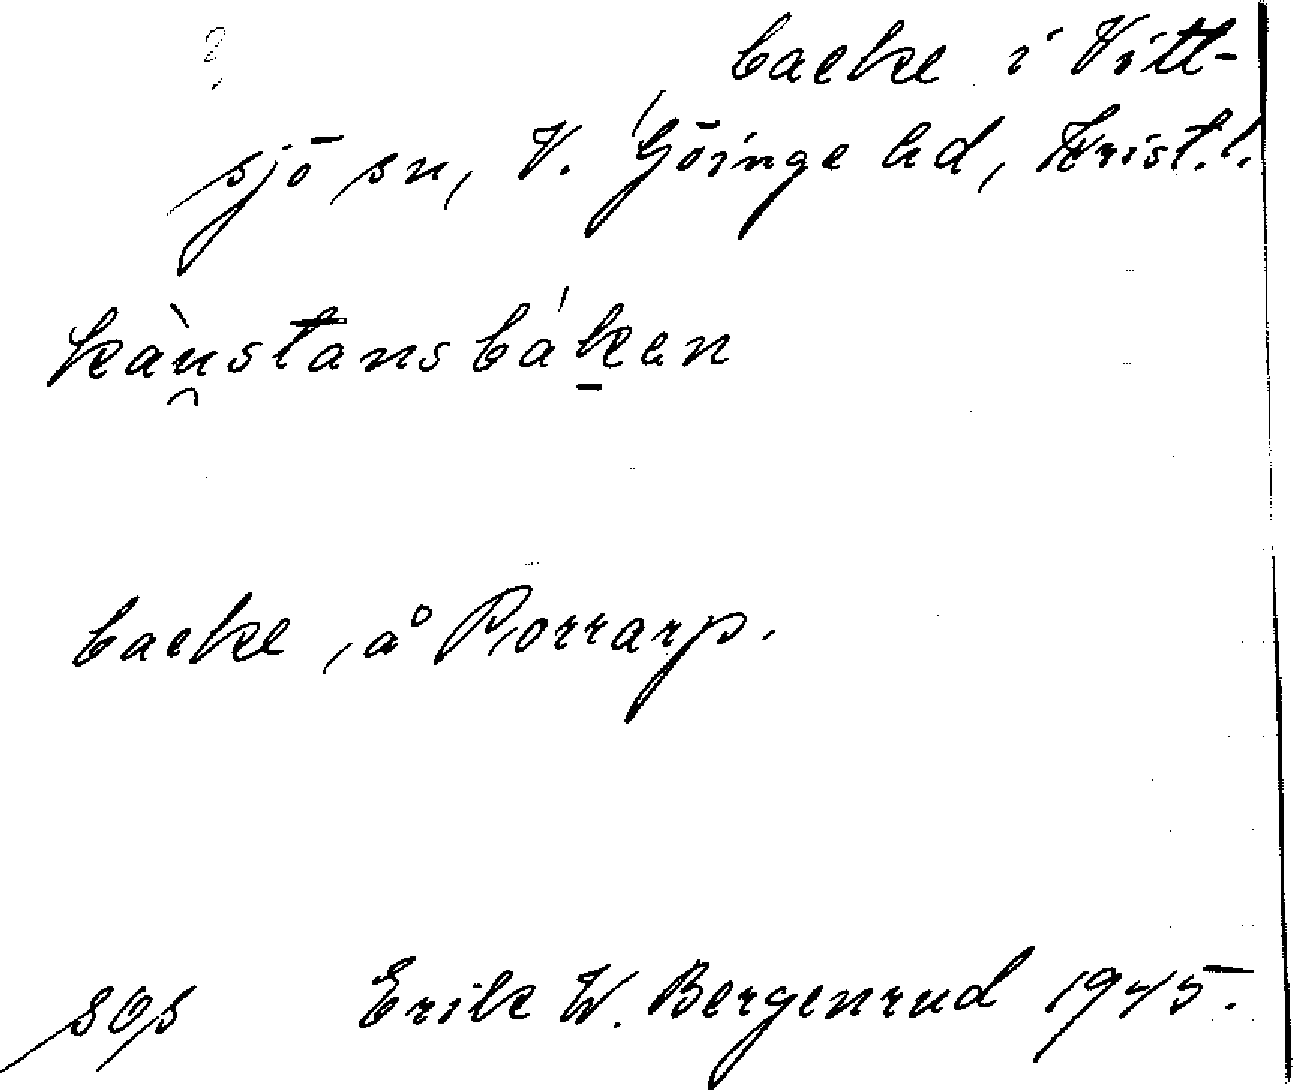 ?
backe i Vitt-
sjö sn, V. Göinge hd, Krist. l.
kàu̯stansbákan
backe, å Porrarp.
sos Erik W. Bergenrud 1945.